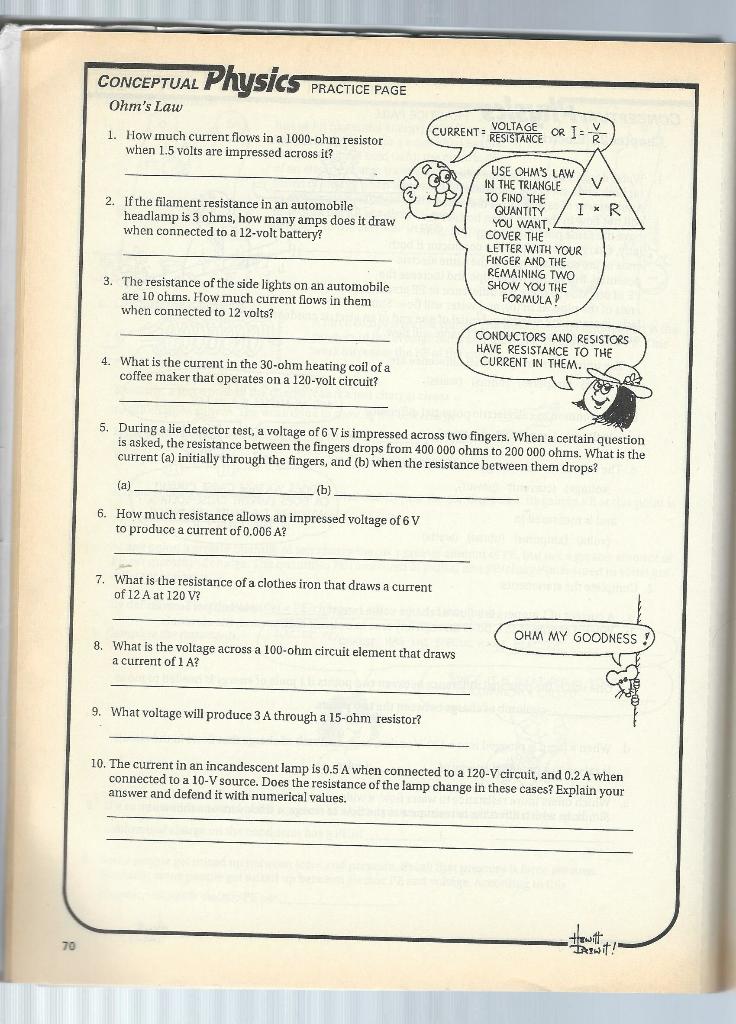 CONCEPTUAL Physics PRACTICE PAGE
Ohm's Law
1. How much current flows in a 1000-ohm resistor
when 1.5 volts are impressed across it?
2. If the filament resistance in an automobile
headlamp is 3 ohms, how many amps does it draw
when connected to a 12-volt battery?
3. The resistance of the side lights on an automobile
are 10 ohms. How much current flows in them
when connected to 12 volts?
4. What is the current in the 30-ohm heating coil of a
coffee maker that operates on a 120-volt circuit?
CURRENT = VOLTAGE / RESISTANCE OR I = V / R
USE OHM'S LAW
IN THE TRIANGLE
TO FIND THE
QUANTITY
YOU WANT,
COVER THE
LETTER WITH YOUR
FINGER AND THE
REMAINING TWO
SHOW YOU THE
FORMULA!
V
I × R
CONDUCTORS AND RESISTORS
HAVE RESISTANCE TO THE
CURRENT IN THEM.
5. During a lie detector test, a voltage of 6 V is impressed across two fingers. When a certain question
is asked, the resistance between the fingers drops from 400 000 ohms to 200 000 ohms. What is the
current (a) initially through the fingers, and (b) when the resistance between them drops?
(a) (b)
6. How much resistance allows an impressed voltage of 6 V
to produce a current of 0.006 A?
7. What is the resistance of a clothes iron that draws a current
of 12 A at 120 V?
8. What is the voltage across a 100-ohm circuit element that draws
a current of 1 A?
OHM MY GOODNESS!
9. What voltage will produce 3 A through a 15-ohm resistor?
10. The current in an incandescent lamp is 0.5 A when connected to a 120-V circuit, and 0.2 A when
connected to a 10-V source. Does the resistance of the lamp change in these cases? Explain your
answer and defend it with numerical values.
70
Hewitt
Drewit!